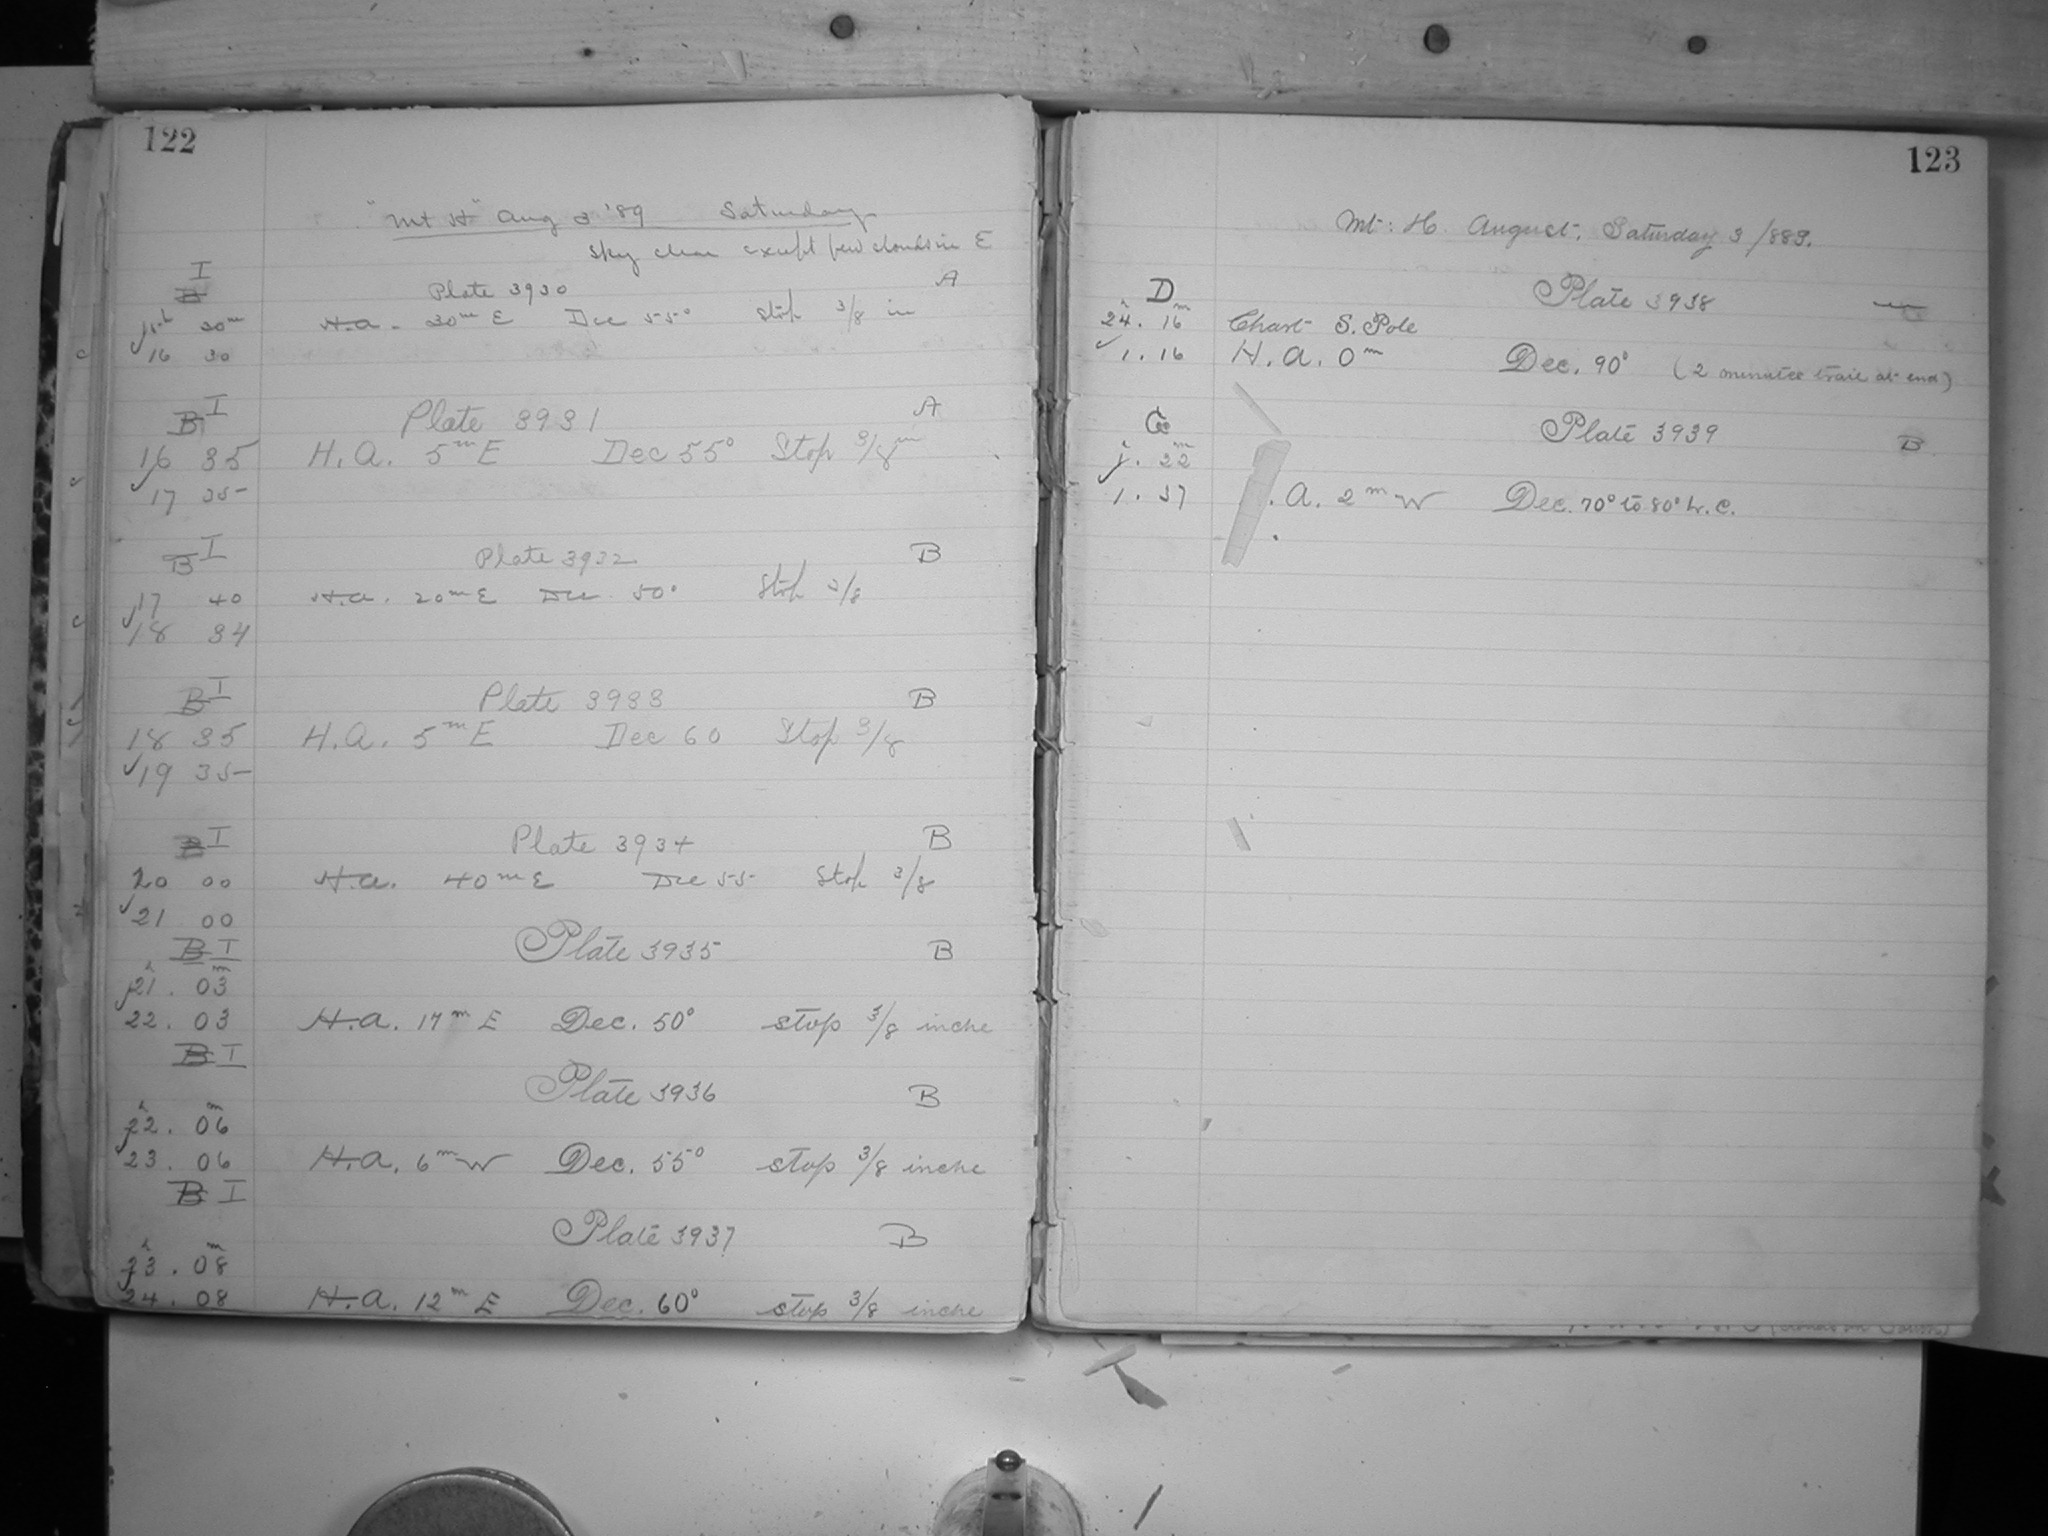 122
"Mt H" Aug 3 '89 Saturday
Sky clear except few clouds in E
I
B
Plate 3930 A
15h 30m H.A. 30m E Dec 55° Stop 3/8 in
16 30
B I Plate 3931 A
16 35 H.A. 5m E Dec 55° Stop 3/8 in
17 35
B I Plate 3932 B
17 40 H.A. 20m E Dec 50° Stop 3/8
18 34
B I Plate 3933 B
18 35 H.A. 5m E Dec 60 Stop 3/8
19 35
B I Plate 3934 B
20 00 H.A. 40m E Dec 55 Stop 3/8
21 00
B I Plate 3935 B
21h. 03m
22. 03 H.A. 17m E Dec. 50° stop 3/8 inche
B I
Plate 3936 B
22h. 06m
23. 06 H.A. 6m W Dec. 55° stop 3/8 inche
B I
Plate 3937 B
23h. 08m
24. 08 H.A. 12m E Dec. 60° stop 3/8 inche
123
Mt: H. August, Saturday 3/889.
D Plate 3938
24h. 16m Chart S. Pole
1. 16 H.A. 0m Dec. 90° (2 minutes trail at end)
Plate 3939 B
1h. 22m
1. 37 .A. 2m W Dec. 70° to 80° L.C.